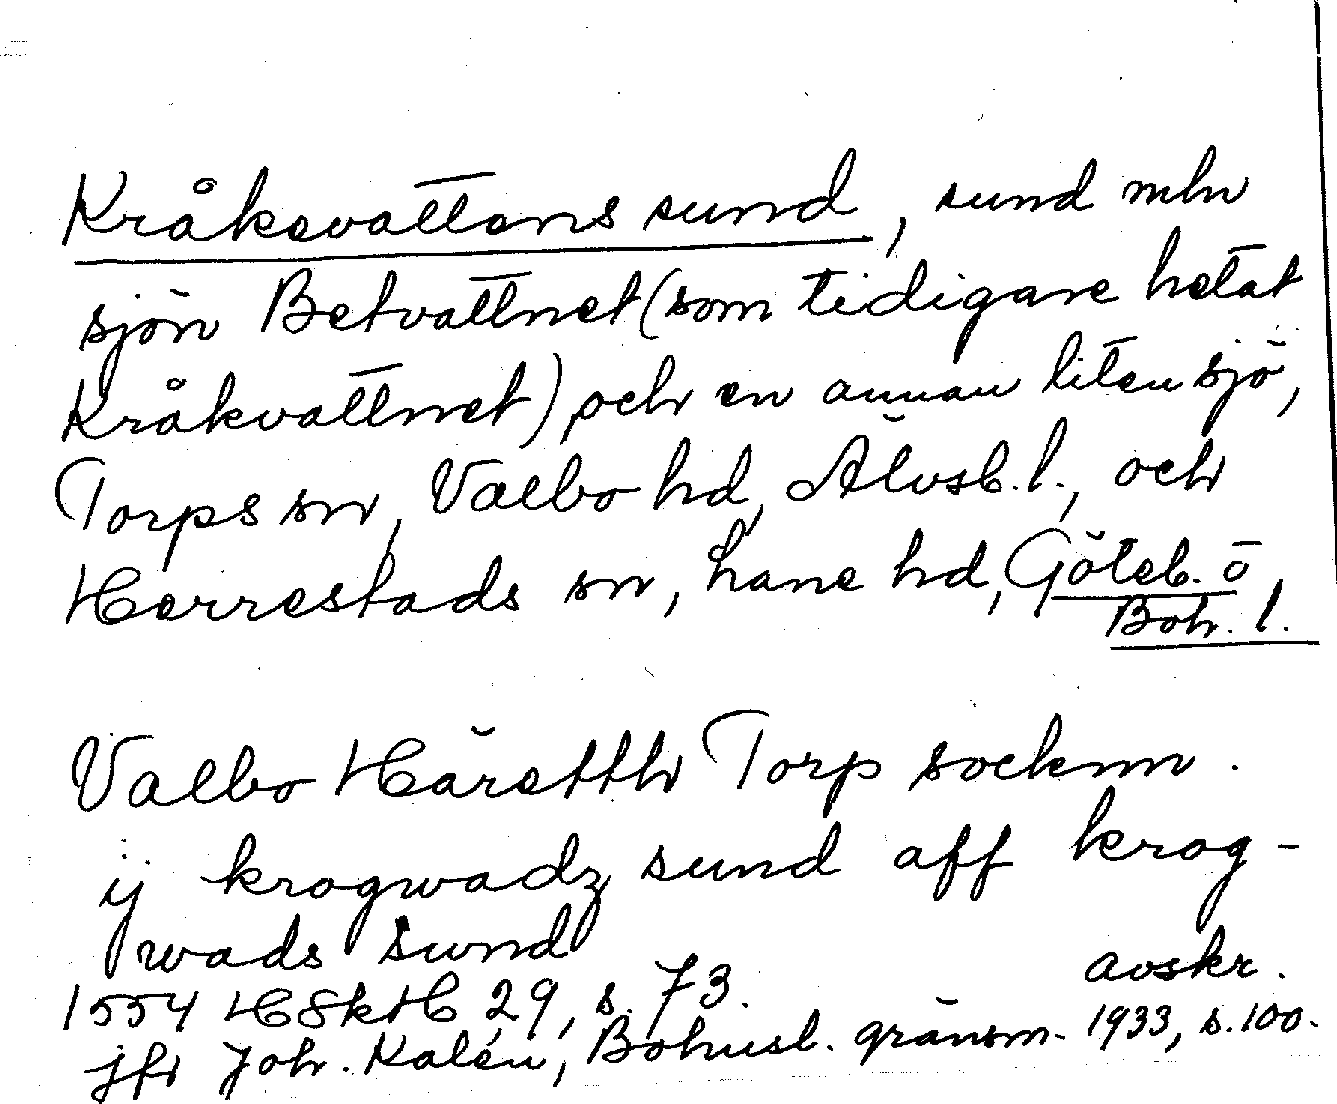 Kråkevattens sund, sund mln
sjön Betvattnet (som tidigare hetat
Kråkvattnet) och en annan liten sjö,
Torps sn, Valbo hd, Älvsb. l., och
Herrestads sn, Lane hd, Göteb. o
Boh. l.
Valbo Häretth Torp socknn.
ij krogwadz sund aff krog-
wads sund
avskr.
1554 HSkH 29, s. 73.
jfr Joh. Kalén, Bohusl. gränsm. 1933, s. 100.